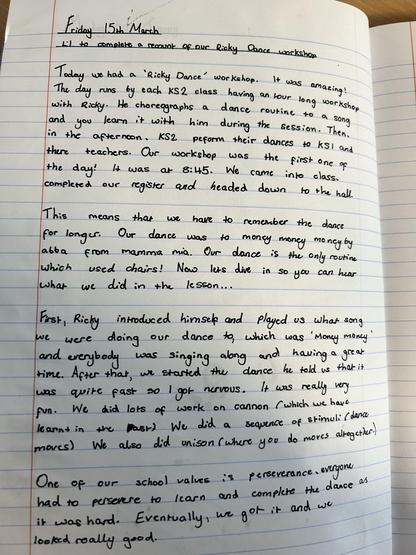 Friday 15th March
L.I to complete a recount of our Ricky Dance workshop
Today we had a 'Ricky Dance' workshop. It was amazing!
The day runs by each KS2 class having an hour long workshop
with Ricky. He choreographs a dance routine to a song
and you learn it with him during the session. Then,
in the afternoon. KS2 peform their dances to KS1 and
there teachers. Our workshop was the first one of
the day! It was at 8:45. We came into class,
completed our register and headed down to the hall.
This means that we have to remember the dance
for longer. Our dance was to money money money by
abba from mamma mia. Our dance is the only routine
which used chairs! Now lets dive in so you can hear
what we did in the lesson...
First, Ricky introduced himself and played us what song
we were doing our dance to, which was 'Money money'
and everybody was singing along and having a great
time. After that, we started the dance he told us that it
was quite fast so I got nervous. It was really very
fun. We did lots of work on cannon (which we have
learnt in the past) We did a sequence of stimuli (dance
moves) We also did unison (where you do moves altogether.)
One of our school values is perseverance. everyone
had to persevere to learn and complete the dance as
it was hard. Eventually, we got it and we
looked really good.